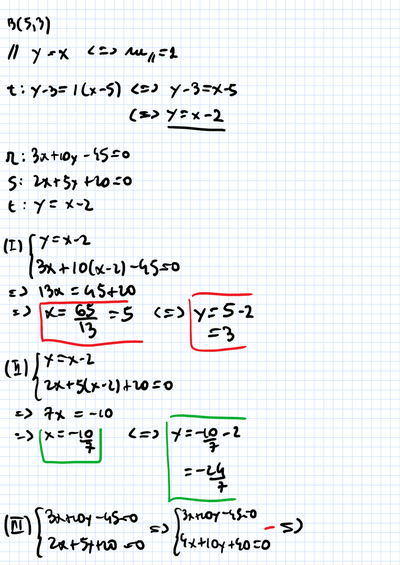 B(5,3)
// y=x <=> m// = 1
t: y-3=1(x-5) <=> y-3=x-5
<=> y=x-2
r: 3x+10y-45=0
s: 2x+5y+20=0
t: y=x-2
(I) { y=x-2
3x+10(x-2)-45=0
=> 13x=45+20
=> x=65/13=5 <=> y=5-2
=3
(II) { y=x-2
2x+5(x-2)+20=0
=> 7x=-10
=> x=-10/7 <=> y=-10/7-2
=-24/7
(III) { 3x+10y-45=0 => { 3x+10y-45=0
2x+5y+20=0 4x+10y+40=0 - =>